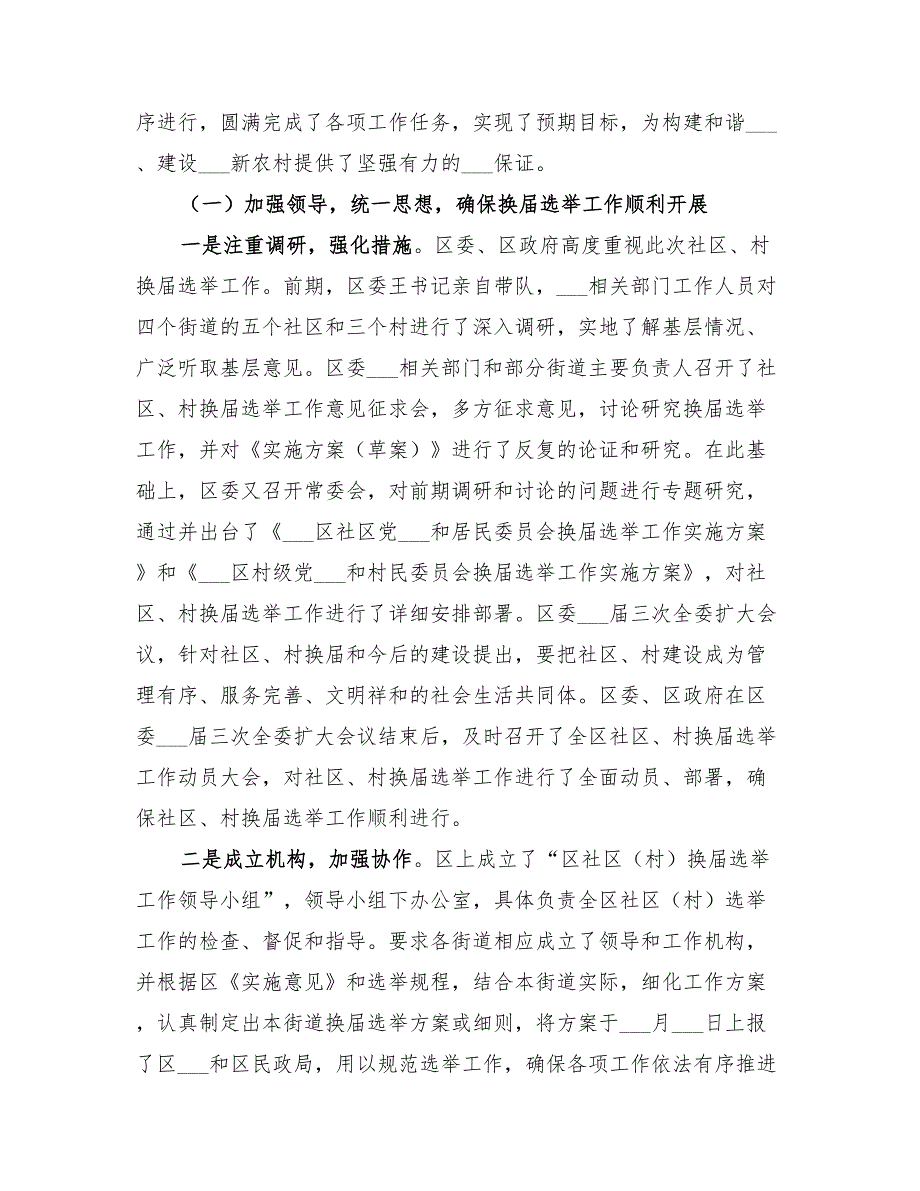 序进行，圆满完成了各项工作任务，实现了预期目标，为构建和谐___
、建设___新农村提供了坚强有力的___保证。
（一）加强领导，统一思想，确保换届选举工作顺利开展
一是注重调研，强化措施。区委、区政府高度重视此次社区、村
换届选举工作。前期，区委王书记亲自带队，___相关部门工作人员对
四个街道的五个社区和三个村进行了深入调研，实地了解基层情况、
广泛听取基层意见。区委___相关部门和部分街道主要负责人召开了社
区、村换届选举工作意见征求会，多方征求意见，讨论研究换届选举
工作，并对《实施方案（草案）》进行了反复的论证和研究。在此基
础上，区委又召开常委会，对前期调研和讨论的问题进行专题研究，
通过并出台了《___区社区党___和居民委员会换届选举工作实施方案
》和《___区村级党___和村民委员会换届选举工作实施方案》，对社
区、村换届选举工作进行了详细安排部署。区委___届三次全委扩大会
议，针对社区、村换届和今后的建设提出，要把社区、村建设成为管
理有序、服务完善、文明祥和的社会生活共同体。区委、区政府在区
委___届三次全委扩大会议结束后，及时召开了全区社区、村换届选举
工作动员大会，对社区、村换届选举工作进行了全面动员、部署，确
保社区、村换届选举工作顺利进行。
二是成立机构，加强协作。区上成立了“区社区（村）换届选举
工作领导小组”，领导小组下办公室，具体负责全区社区（村）选举
工作的检查、督促和指导。要求各街道相应成立了领导和工作机构，
并根据区《实施意见》和选举规程，结合本街道实际，细化工作方案
，认真制定出本街道换届选举方案或细则，将方案于___月___日上报
了区___和区民政局，用以规范选举工作，确保各项工作依法有序推进